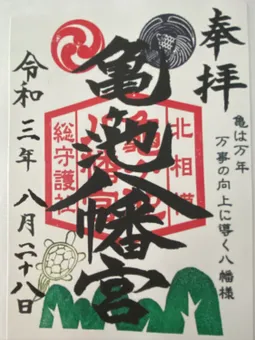 奉拝
亀は万年
万事の向上に導く八幡様
亀ヶ池八幡宮
北相模
総守護社
令和三年八月二十八日